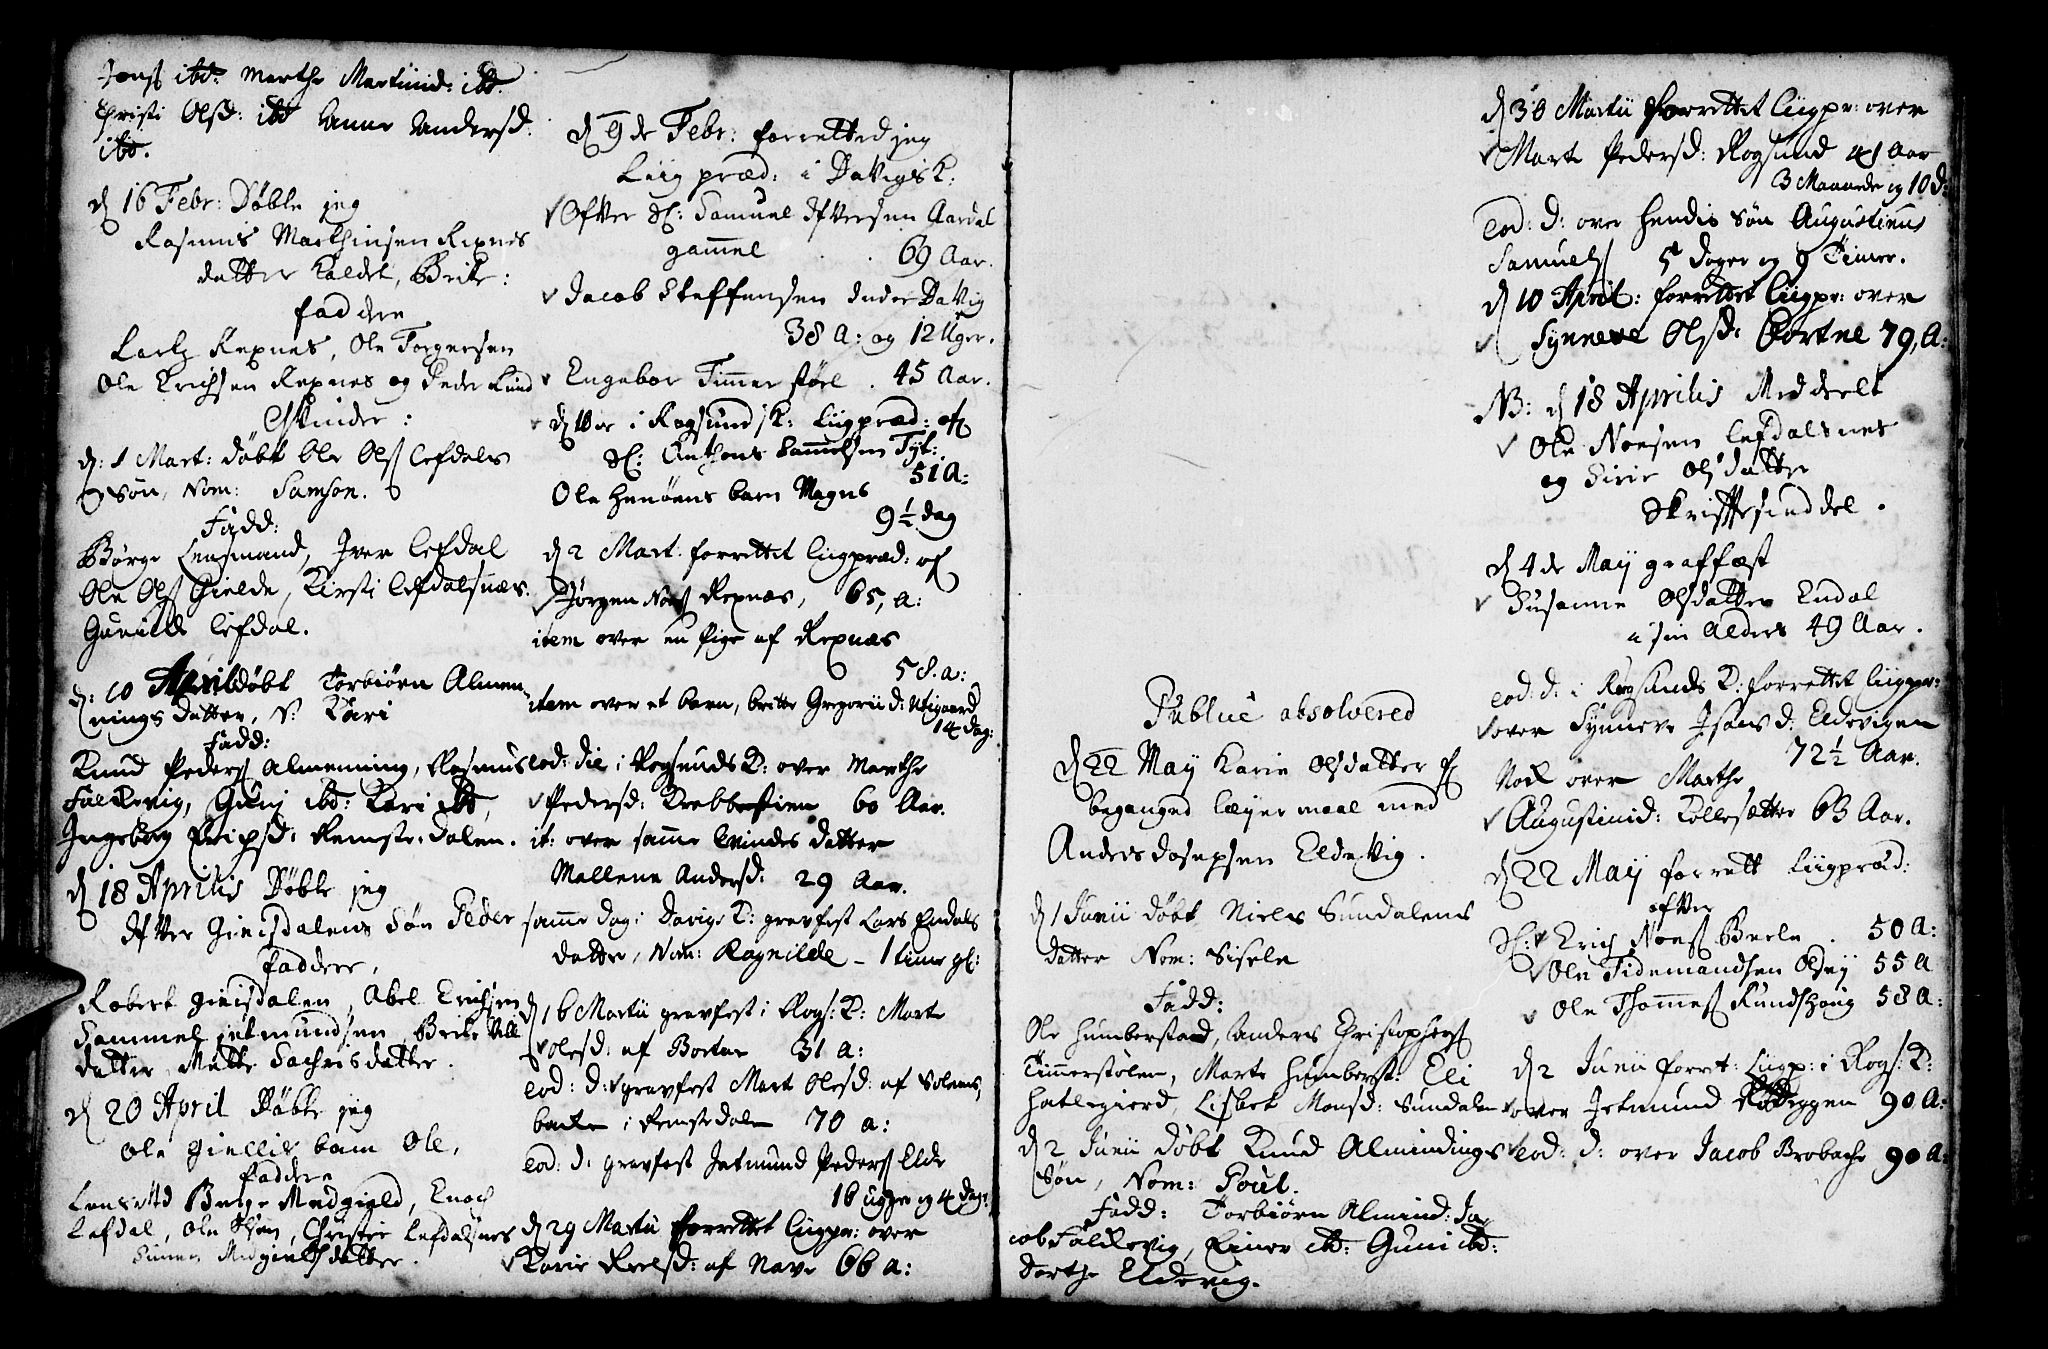 Jons ibd: Marthe Martinid: ibd.
Christi Olsd: ibd Anne Andersd:
ibd.
d 16 Febr: Døbte jeg
Rasmus Marthinsen Rexnes
datter kaldet, Brite:
faddere
Lars Rexnes, Ole Torgersen
Ole Erichsen Rexnes og Peder Lund
Qvinder:
d: 1 Mart: døbt Ole Ols Lefdals
Søn, Nom: Samson.
Fadd:
Børge Lensmand, Iver Lefdal
Ole Ols Gielde, Kirsti Lefdalsnæs.
Gunild Lefdal.
d: 10 April døbt Torbiørn Almen
nings datter, N: Kari
Fadd:
Knud Peders Almenning, Rasmus
Falckevig, Guni ibd: Kari ibd,
Ingeborg Erichsd: Remsterdalen.
d 18 Aprilis Døbte jeg
Iffver Ginisdalens Søn Peder
faddere,
Robert Ginisdalen, Abel Erichsen
Sammel Jetmundsen Brite
datter, Mette Sachrisdatter.
d 20 April Døbte jeg
Ole Giellis barn Ole,
faddere
Børge Medgield, Enoch
Lefdal, Ole Olsen, Christie Lefdalsnes
datter.
d 9de Febr: forretted jeg
Liigpræd: i Davigs K:
Offver Sl: Samuel Iffversen Aardal
gamel 69 Aar.
Jacob Steffensen Indre Davig
38 A: og 12 Uger.
Engebor Timmerstøel. 45 Aar.
d 10de i Rogsunds K: Liigpræd: of
Sl: Anthons Samelsen Tyt:
51 A:
Ole Henøens barn Magns
9½ dag
d 2 Mart: forrettet Liigpræd: of
Jørgen Nons Rexnæs, 65, a:
item over en Pige af Rexnæs
58. a:
item over et barn, britte Gregorii d: Utigaard
14 dag:
eod: die i Rogsunds K: over Marthe
Pedersd: Krabbestien 60 Aar.
it: over samme Qvindes datter
Mallene Andersd: 29 Aar.
samme dag i Davigs K: gravfest Lars Endals
datter, Nom: Ragnilde - 1 time gl:
d 16 Martii gravfest i Rogs: K: Marte
olesd: af Bortne 31 A:
eod: d: gravfest Mart Olesd: af Solems
backe i Remstedalen 70 a:
eod: d: gravfest Jetmund Peders Elde
16 uger og 4 dag:
d 29 Martii forrettet Liigpr: over
Karie Roelsd: af Nave 66 a:
Publicè absolvered
d 22 Maij Karin Olsdatter of
beganged Leyermaal med
Anders Josepsen Eldevig.
d 1 Junii døbt Niels Sundalens
datter Nom: Sisele
Fadd:
Ole Humberstad, Anders Christophers
Timmerstølen, Marte Humberst: Eli
Hatlegierd, Lisbet Monsd: Sundalen
d 2 Junii døbt Knud Almindings
Søn, Nom: Poul.
Fadd: Torbiørn Almind: Ja
cob Falckevig, Einer ibd: Guni ibd:
Dorthe Eldevig.
d 30 Martii forrettet Liigpr: over
Marte Pedersd: Rogsund 41 Aar
3 Maaneder og 10 d:
Eod: d: over hendis Søn Augustinus
Samuels 5 dager og 9 Timer.
d 10 April: forrettet Liigpr: over
Synneve Olsd: Bortne 79, A:
NB: d 18 Aprilis Meddeelt
Ole Monsen Lefdalsnes
og Sirie Olsdatter
Skriftesæddel.
d 4de Maij graffæst
Susanne Olsdatter Endal
i sin Alders 49 Aar.
eod: d: i Rogsunds K: forrettet Liigpr:
over Synneve Isaas d: Eldevigen
72½ Aar.
Nock over Marthe
Augustinid: Kollesætter 63 Aar.
d 22 Maij forrett Liigpræd:
offver
Sl: Erich Nons Beele. 50 A:
Ole Tidemandsen Oldeij 55 A
Ole Thommes Rundshoug 58 A:
d 2 Junii forret: Liigp: i Rogs: K:
over Jetmund 90 A:
eod: d: over Jacob Brobache 90 A: